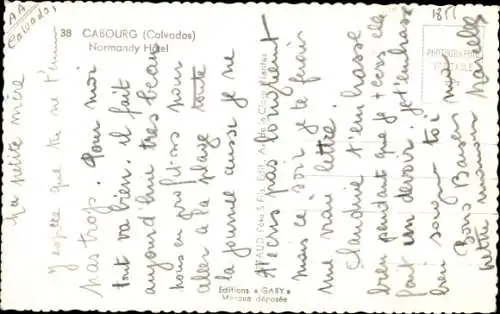 AA
Calvados
1855
38 CABOURG (Calvados)
Normandy Hôtel
PHOTOGRAPHIE
VÉRITABLE
RAUD Père & Fils, Edit.
Editions « GABY »
Marque déposée
Ma petite mère
J'espère que tu ne t'ennuies
pas trop. Pour moi
tout va bien. il fait
aujourd'hui très beau
nous en profitons pour
aller à la plage toute
la journée aussi je ne
t'écris pas longuement
mais ce soir je te ferai
une vraie lettre.
Claudine t'embrasse
bien pendant que je t'écris elle
fait un devoir. je t'embrasse
bien soigne toi
Bons Baisers
petite maman